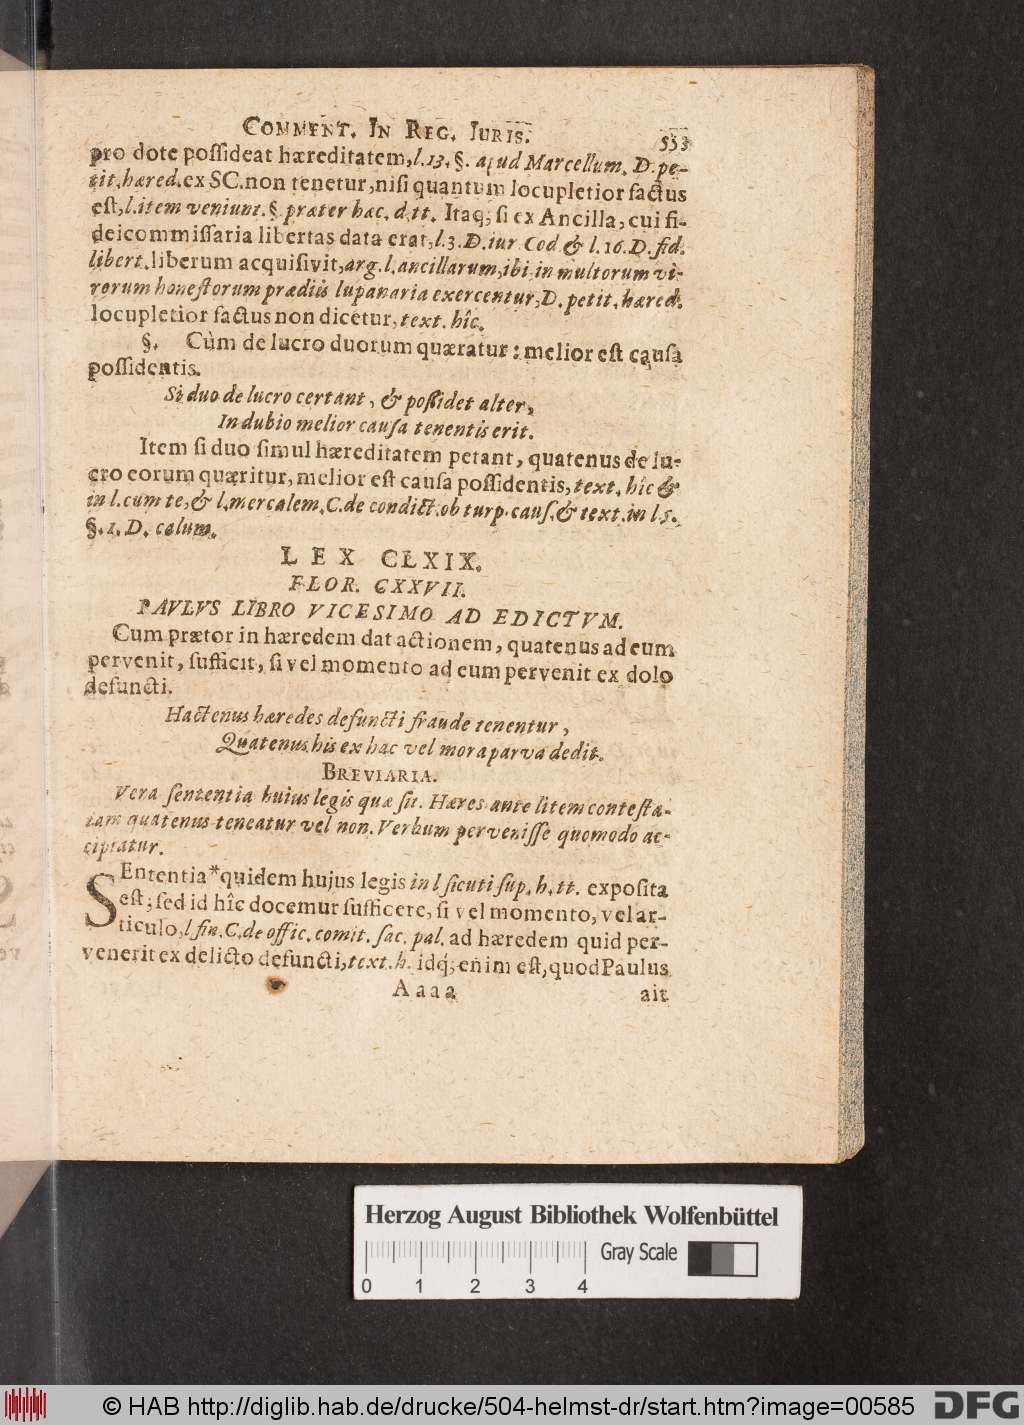 COMMENT. IN REG. IURIS. 553
pro dote possideat hæreditatem, l. 13. §. apud Marcellum. D. pe-
tit. hæred. ex SC. non tenetur, nisi quantum locupletior factus
est, l. item veniunt. §. præter hac. d. tt. Itaq; si ex Ancilla, cui fi-
deicommissaria libertas data erat, l. 3. D. iur Cod & l. 16. D. fid.
libert. liberum acquisivit, arg. l. ancillarum, ibi in multorum vi-
rorum honestorum prædiis lupanaria exercentur, D. petit. hæred.
locupletior factus non dicetur, text. hîc.
§. Cùm de lucro duorum quæratur: melior est causa
possidentis.
Si duo de lucro certant, & possidet alter,
In dubio melior causa tenentis erit.
Item si duo simul hæreditatem petant, quatenus de lu-
cro eorum quæritur, melior est causa possidentis, text. hîc &
in l. cum te, & l. mercalem. C. de condict. ob turp. caus. & text. in l. 5.
§. 1. D. calum.
LEX CLXIX.
FLOR. CXXVII.
PAVLVS LIBRO VICESIMO AD EDICTVM.
Cum prætor in hæredem dat actionem, quatenus ad eum
pervenit, sufficit, si vel momento ad eum pervenit ex dolo
defuncti.
Hactenus hæredes defuncti fraude tenentur,
Quatenus his ex hac vel mora parva dedit.
BREVIARIA.
Vera sententia huius legis quæ sit. Hæres ante litem contesta-
tam quatenus teneatur vel non. Verbum pervenisse quomodo ac-
cipiatur.
SEntentia* quidem hujus legis in l sicuti sup. h. tt. exposita
est; sed id hîc docemur sufficere, si vel momento, vel ar-
ticulo, l fin. C. de offic. comit. sac. pal. ad hæredem quid per-
venerit ex delicto defuncti, text. h. idq; enim est, quod Paulus
Aaaa ait
Herzog August Bibliothek Wolfenbüttel
Gray Scale
0 1 2 3 4
© HAB http://diglib.hab.de/drucke/504-helmst-dr/start.htm?image=00585 DFG